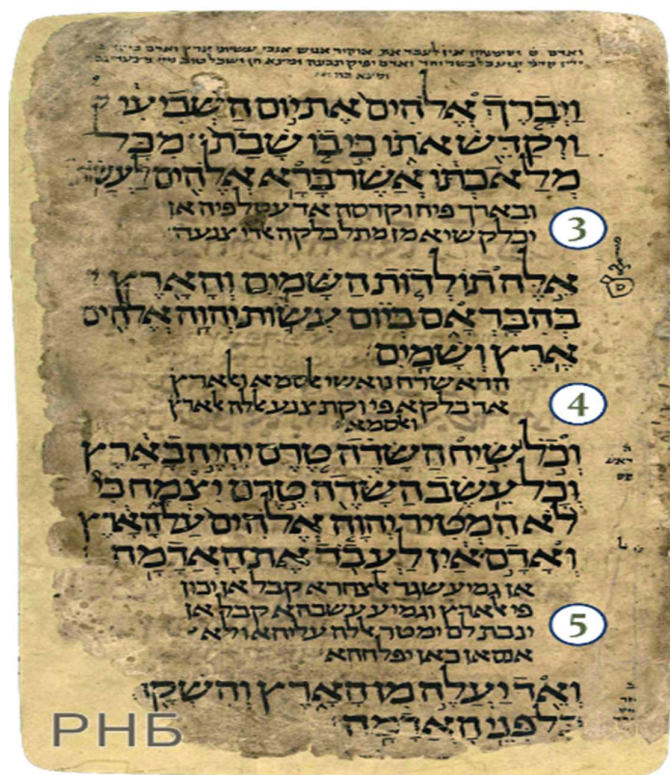 ויברך אלהים את יום השביעי
ויקדש אתו כי בו שבת מכל
מלאכתו אשר ברא אלהים לעש
ובארך פיה וקדסה אד עטל פיה אן
יכלק שיא מן מתל כלקה צנעה
3
אלה תולדות השמים והארץ
בהבראם ביום עשות יהוה אלהים
ארץ ושמים
הדא שרח נואשי אלסמא ואלארץ
אד כלקא פי וקת צנע אללה אלארץ
ואלסמא
4
וכל שיח השדה טרם יהיה בארץ
וכל עשב השדה טרם יצמח כי
לא המטיר יהוה אלהים על הארץ
ואדם אין לעבד את האדמה
אן גמיע שגר אלצחרא קבל אן יכון
פי אלארץ וגמיע עשבהא קבל אן
ינבת לם ימטר אללה עליהא ולא
אנסאן כאן יפלחהא
5
ואד יעלה מן הארץ והשקה
כל פני האדמה
РНБ